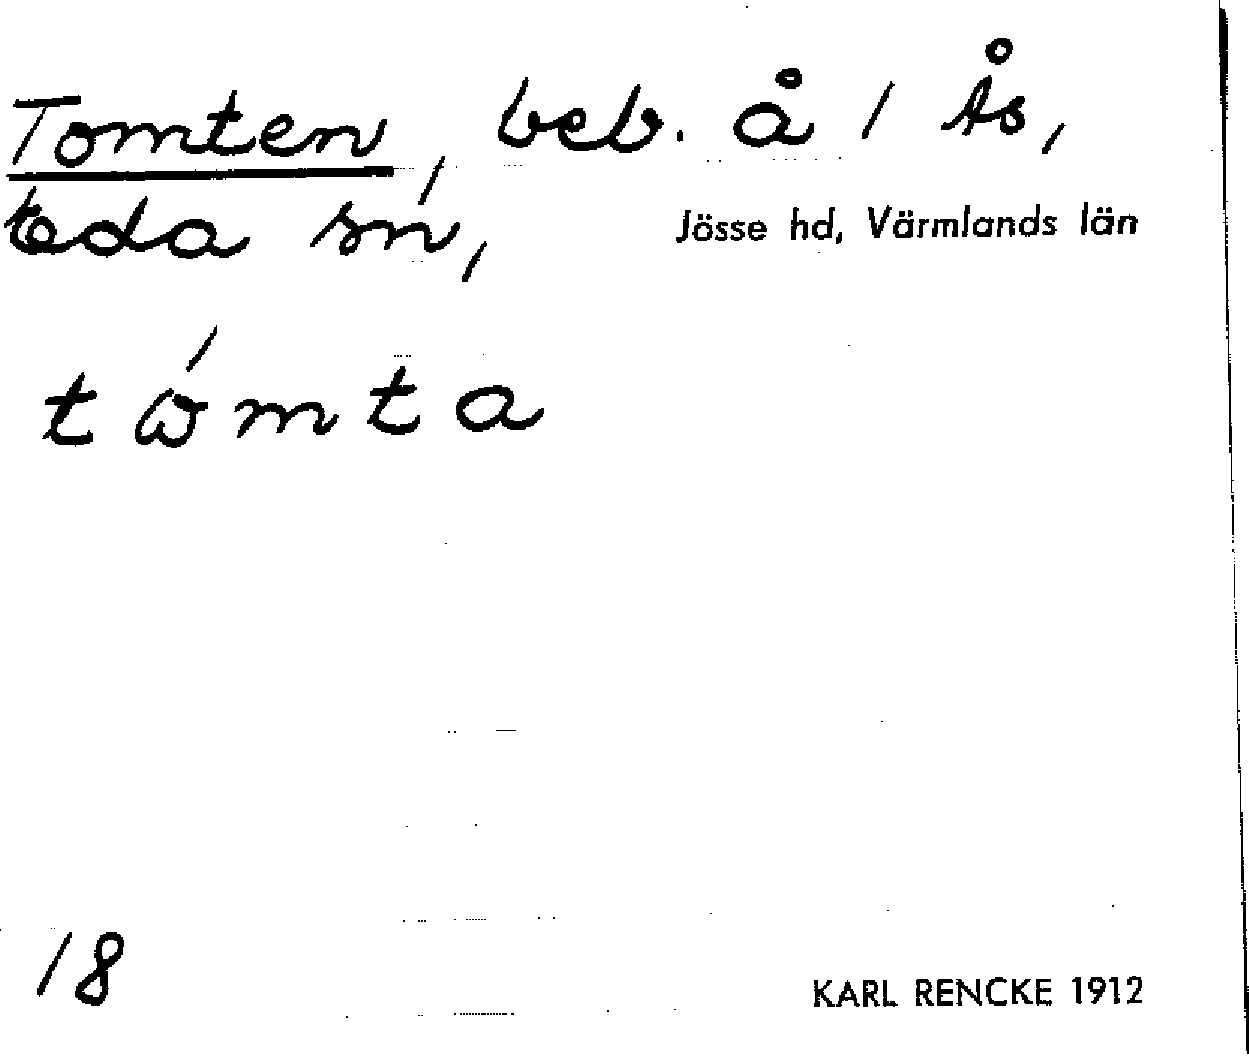 Tomten, beb. å 1 Ås,
Eda sn, Jösse hd, Värmlands län
tω´mta
18
KARL RENCKE 1912